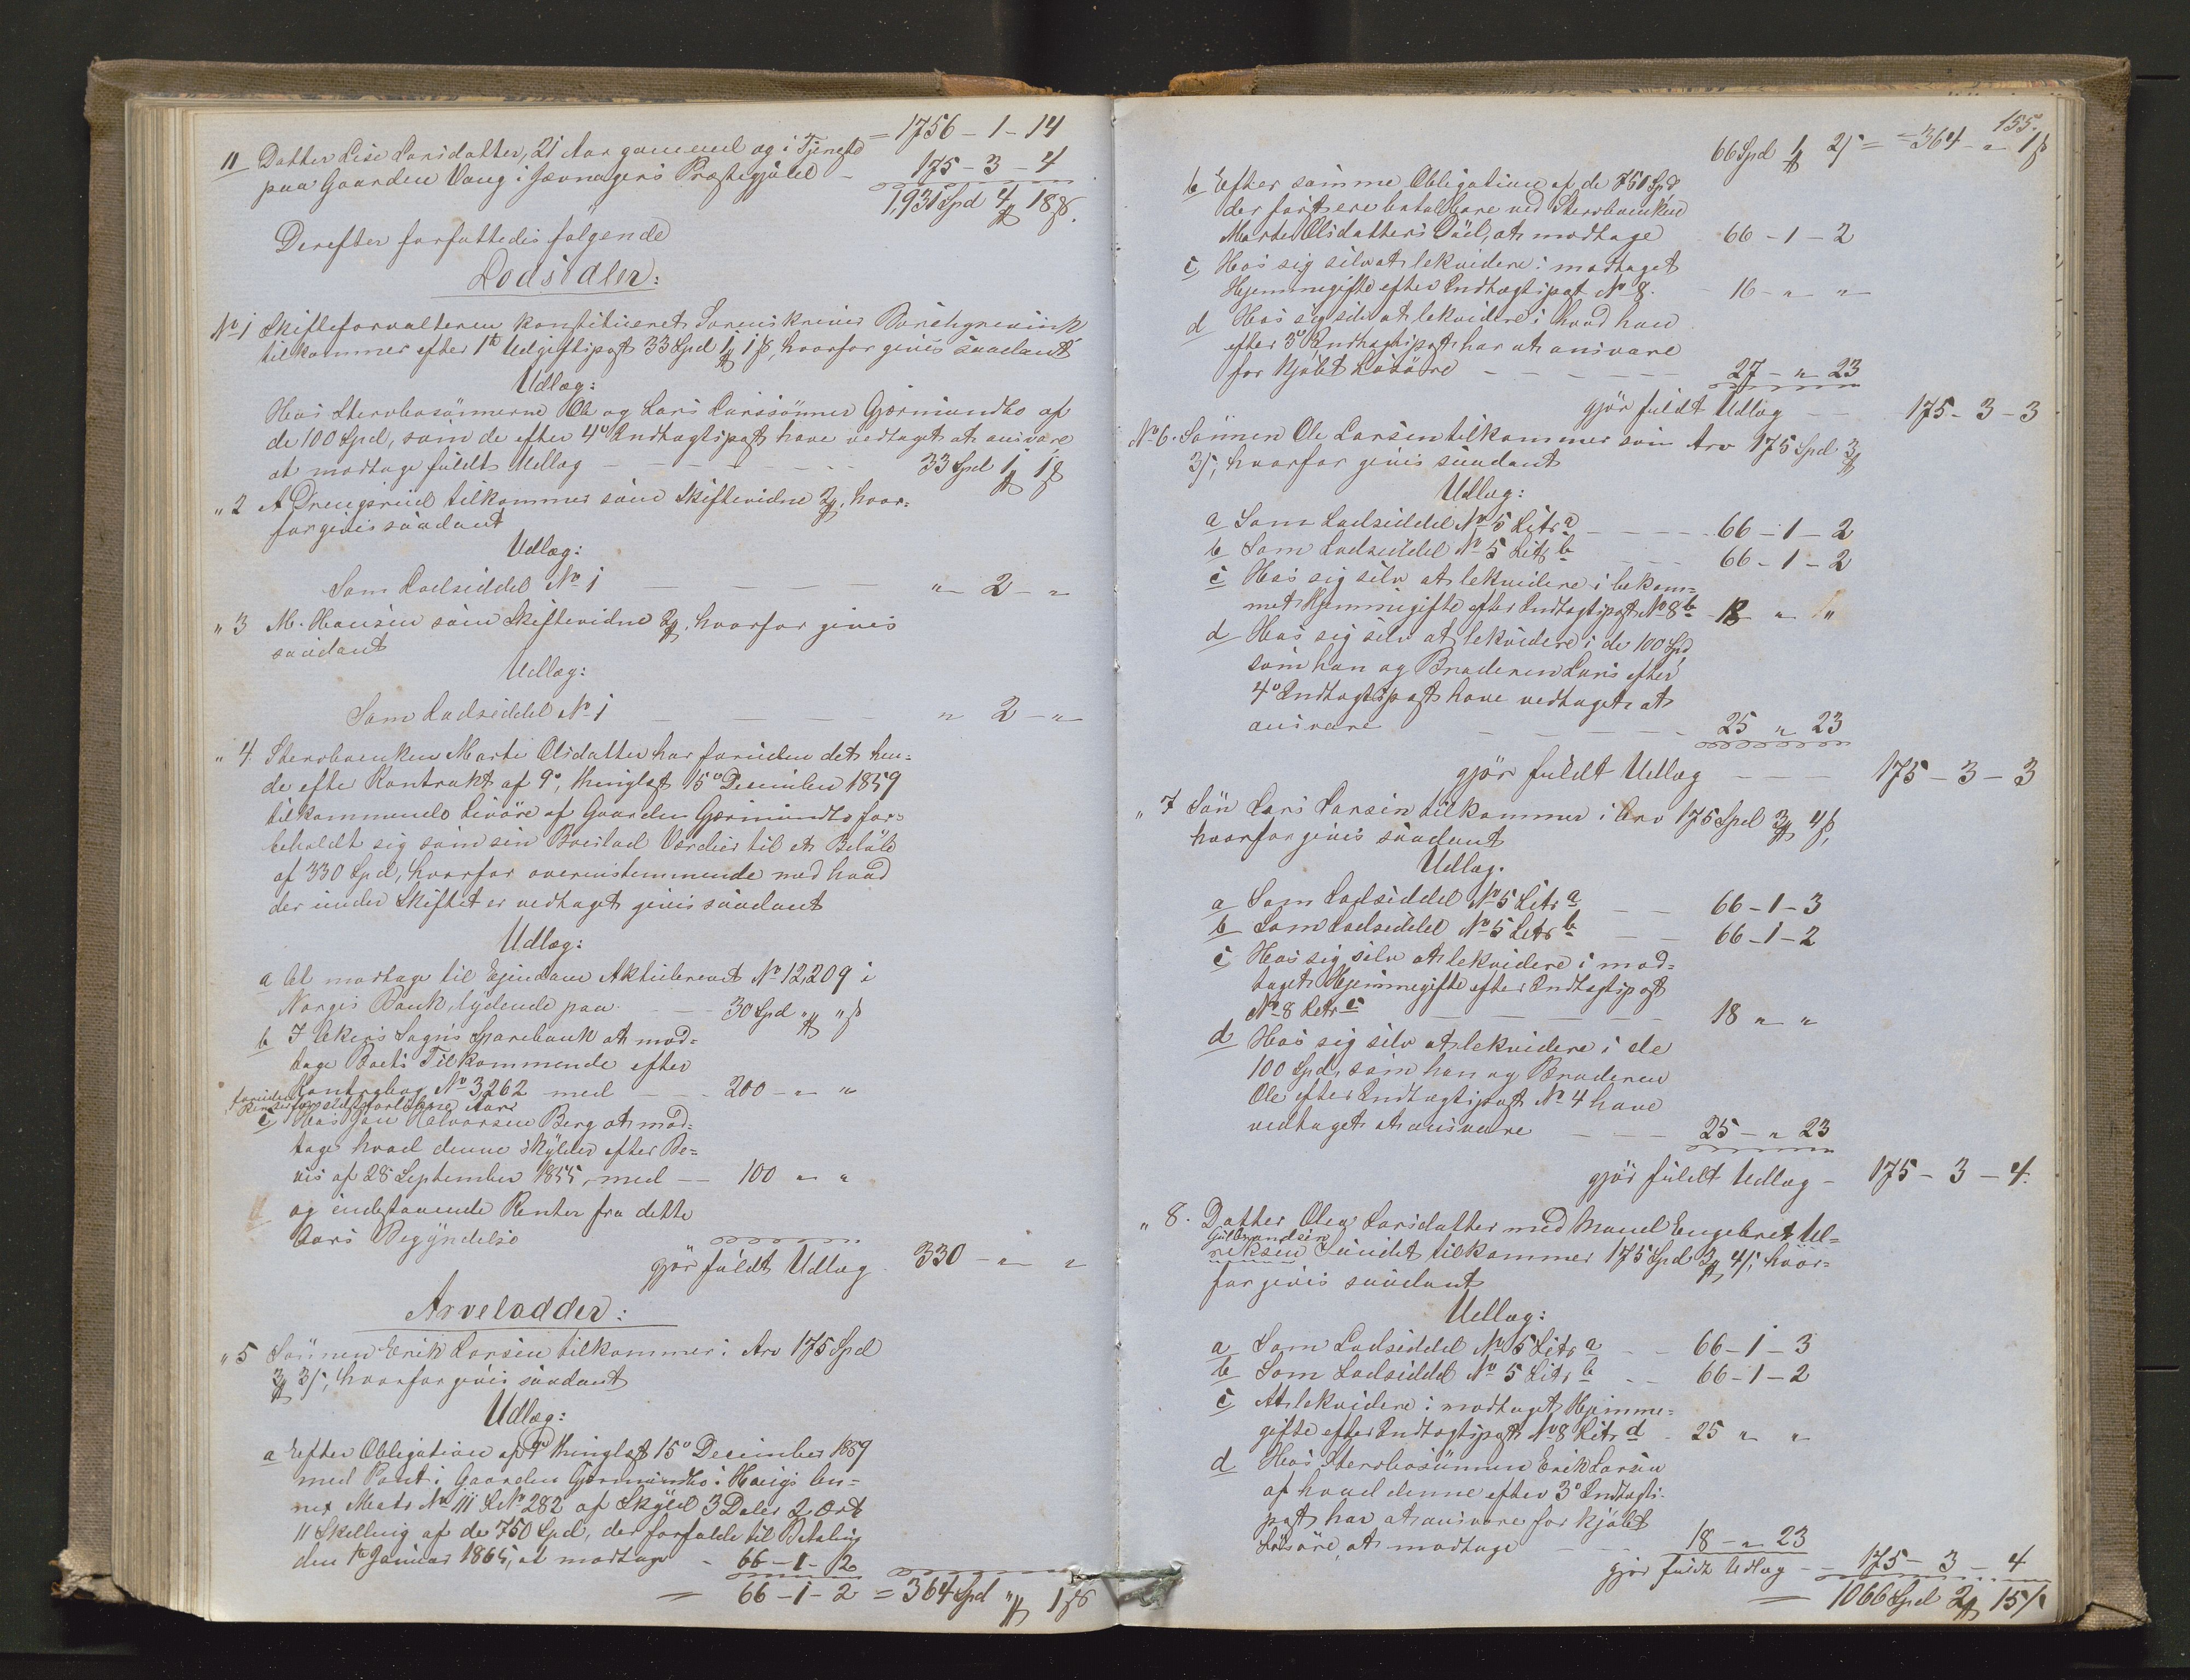 = 1756 - 1 - 14
11 Datter Lise Larsdatter, 21 Aar gammel og i Tjeneste
paa Gaarden Vang i Jævnagers Præstegjæld - 175 - 3 - 4
1,931 Spd 4 ₰ 18 ß.
Derefter forfattedes følgende
Lodsedler:
No 1 Skifteforvalteren konstitueret Sorenskriver Borchgrevink
tilkommer efter 1te Udgiftspost 33 Spd 1 ₰ 1 ß, hvorfor gives saadant
Udlæg:
Hos Stervbosønnerne Ole og Lars Larssønner Gjermundbo af
de 100 Spd, som de efter 4o Indtægtspost have vedtaget at ansvare
at modtage fuldt Udlæg - - - 33 Spd 1 ₰ 1 ß
" 2 A Drengsrud tilkommer som Skiftevidne 2 ₰, hvor=
for gives saadant
Udlæg:
Som Lodseddel No 1 - - - " - 2 - "
" 3 M. Hansen som Skiftevidne 2 ₰, hvorfor gives
saadant
Udlæg:
Som Lodseddel No 1 - - - " 2 - "
" 4. Stervboenken Marte Olsdatter har foruden det hen=
de efter Kontrakt af 9o, thinglæst 15o December 1859
tilkommende Livøre af Gaarden Gjermundbo for=
beholdt sig som sin Boeslod Værdier til et Beløb
af 330 Spd, hvorfor overensstemmende med hvad
der under Skiftet er vedtaget gives saadant
Udlæg:
a At modtage til Eiendom Aktiebrevet No 12,209 i
Norges Bank, lydende paa - - 30 Spd " ₰ " ß
b I Akers Sogns Sparebank at mod=
tage Boets Tilkommende efter
Kontrabog No 3262 med - - 200 - " "
foruden
Renter for sidstforløbne Aar
c Hos Jon Halvorsen Berg at mod=
tage hvad denne skylder efter Be=
vis af 28 September 1855, med - - 100 " "
og indestaaende Renter fra dette
Aars Begyndelse
gjør fuldt Udlæg 330 - " "
Arvelodder:
" 5 Sønnen Erik Larsen tilkommer i Arv 175 Spd
3 ₰ 3 ß, hvorfor gives saadant
Udlæg:
a Efter Obligation af 9o thinglæst 15o December 1859
med Pant i Gaarden Gjermundbo i Haugs An=
nex Matr No 111 LNo 282 af Skyld 3 Daler 2 Ort
11 Skilling af de 750 Spd, der forfalde til Betaling
den 1te Januar 1865, at modtage - 66 - 1 - 2
= 66 - 1 - 2 = 364 Spd " ₰ 1 ß
155.
66 Spd 1 ₰ 2 ß = = 364 - " 1 ß
b Efter samme Obligation af de 751 Spd
der først ere betalbare ved Stervboenken
Marte Olsdatters Død, at modtage 66 - 1 - 2
c Hos sig selv at lekvidere i modtaget
Hjemmegifte efter Indtægtspost No 8. - 16 - " "
d Hos sig selv at lekvidere i hvad han
efter 3o Indtægtspost har at ansvare
for kjøbt Løsøre - - - 27 - " 23
gjør fuldt Udlæg - - 175 - 3 - 3
No 6. Sønnen Ole Larsen tilkommer som Arv 175 Spd 3 ₰
3 ß, hvorfor gives saadant
Udlæg:
a Som Lodseddel No 5 Litr a - - - 66 - 1 - 2
b Som Lodseddel No 5 Litr b - - 66 - 1 - 2
c Hos sig selv at lekvidere i bekom=
met Hjemmegifte efter Indtægtspost No 8 b - 18 " "
d Hos sig selv at lekvidere i de 100 Spd,
som han og Broderen Lars efter
4o Indtægtspost have vedtaget at
ansvare - - - 25 " 23
gjør fuldt Udlæg - - - 175 - 3 - 3
" 7 Søn Lars Larsen tilkommer i Arv 175 Spd 3 ₰ 4 ß,
hvorfor gives saadant
Udlæg.
a Som Lodseddel No 5 Litr a - - 66 - 1 - 3
b Som Lodseddel No 5 Litr b - - 66 - 1 - 2
c Hos sig selv at lekvidere i mod=
taget Hjemmegifte efter Indtægtspost
No 8 Litr c - - - 18 " "
d Hos sig selv at lekvidere i de
100 Spd, som han og Broderen
Ole efter Indtægtspost No 4 have
vedtaget at ansvare - - - 25 - " 23
gjør fuldt Udlæg - 175 - 3 - 4.
" 8. Datter Olea Larsdatter med Mand Engebret Ul=
Gulbrandsen
riksen Sundet tilkommer 175 Spd 3 ₰ 4 ß, hvor=
for gives saadant
Udlæg:
a Som Lodseddel No 5 Litr a - - 66 - 1 - 3
b Som Lodseddel No 5 Litr b - - 66 - 1 - 2
c At lekvidere i modtaget Hjemme=
gifte efter Indtægtspost No 8 Litr d - 25 " "
d Hos Stervbosønnen Erik Larsen
af hvad denne efter 3o Indtægts-
post har at ansvare for kjøbt
Løsøre, at modtage - - 18 - " 23
gjør fuldt Udlæg - - 175 - 3 - 4
= 1066 Spd 2 ₰ 15 ß